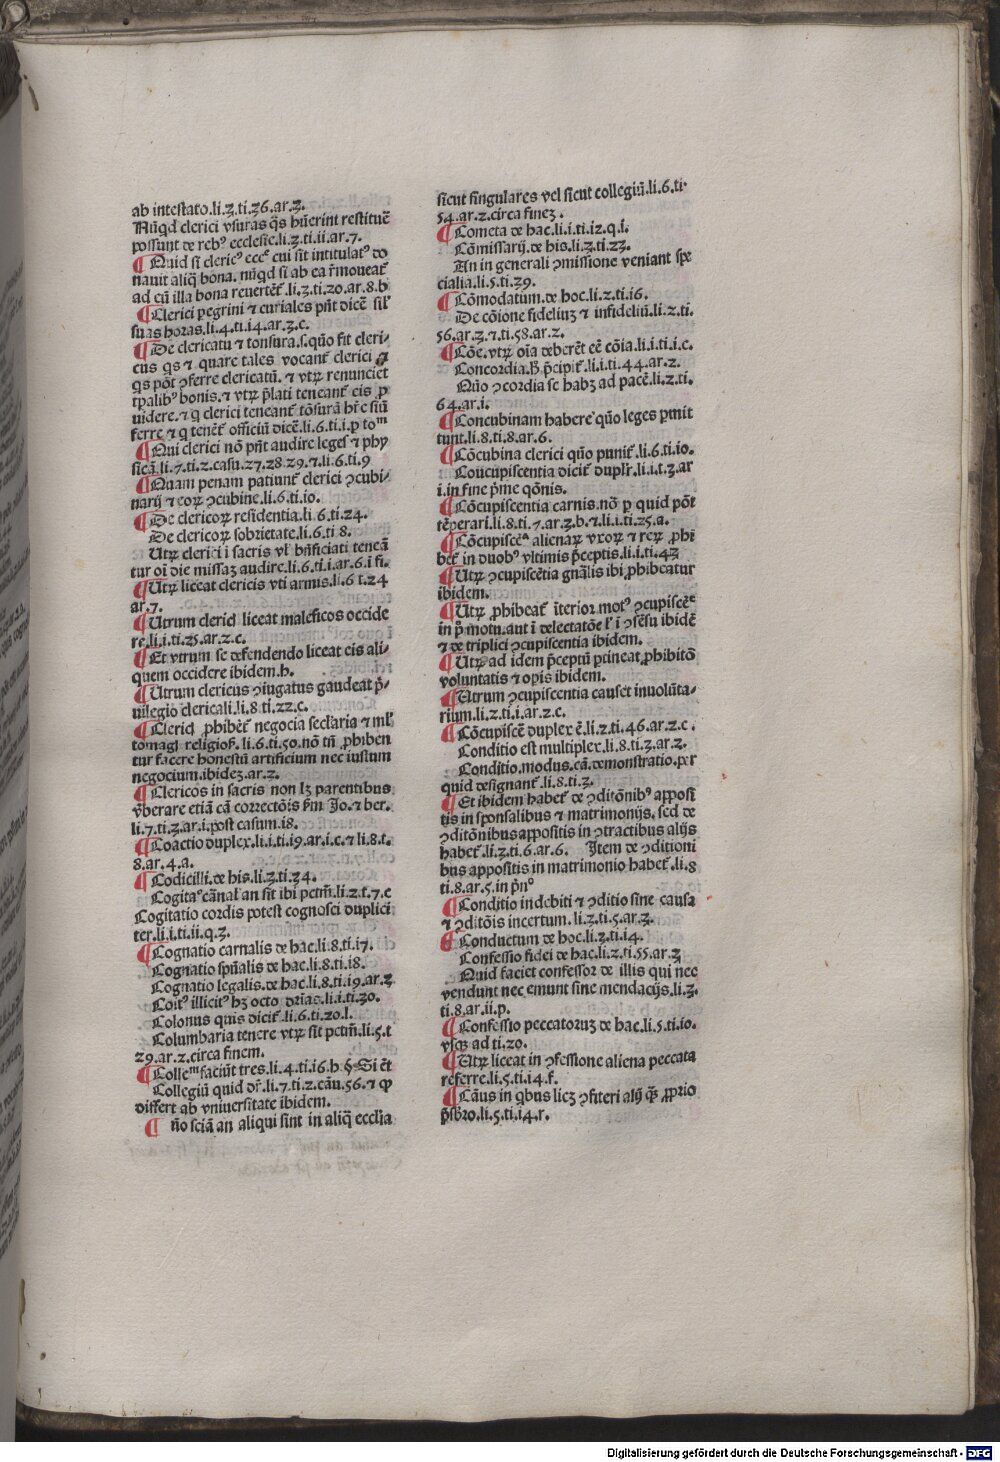 ab intestato.li.3.ti.36.ar.3.
Nũqd clerici vsuras q̃s hũerint restituẽ
possunt de rebꝰ ecclesie.li.3.ti.ii.ar.7.
¶ Quid si clericꝰ eccẽ cui sit intitulatꝰ do
nauit aliq̃ bona. nũqd si ab ea r̃moueat̃
ad eũ illa bona reuertẽt̃.li.3.ti.20.ar.8.b
¶ Clerici pegrini ⁊ curiales pñt dicẽ sil'
suas horas.li.4.ti.14.ar.3.c.
¶ De clericatu ⁊ tonsura.s.quõ fit cleri⸗
cus qs ⁊ quare tales vocant̃ clerici ⁊
qs põt ꝯferre clericatũ. ⁊ vtꝝ renunciet
tp̃alibꝰ bonis. ⁊ vtꝝ p̃lati teneant̃ eis ꝓ
uidere. ⁊ q clerici teneant̃ tõsurã hr̃e siũ
ferre ⁊ q tenẽt̃ officiũ dicẽ.li.6.ti.i.p toᵐ
¶ Qui clerici nõ pñt audire leges ⁊ phy
sicã.li.7.ti.2.casu.27.28.29.⁊.li.6.ti.9
¶ Quam penam patiunt̃ clerici ꝯcubi⸗
narij ⁊ coꝝ ꝯcubine.li.6.ti.io.
¶ De clericoꝝ residentia.li.6.ti.24.
De clericoꝝ sobrietate.li.6.ti 8.
Utꝝ clerici ĩ sacris vl' bñficiati teneã
tur oĩ die missaz audire.li.6.ti.i.ar.6.ĩ fi.
¶ Utꝝ liceat clericis vti armis.li.6 t.24
ar.7.
¶ Utrum clerici liceat maleficos occide
re.li.i.ti.25.ar.2.c.
¶ Et vtrum se defendendo liceat eis ali⸗
quem occidere ibidem.h.
¶ Utrum clericus ꝯiugatus gaudeat p̃⸗
uilegio clericali.li.8.ti.22.c.
¶ Clerici ꝓhibẽt̃ negocia secl'aria ⁊ ml'
tomagi religiosi.li.6.ti.50.nõ tñ ꝓhiben
tur facere honestũ artificium nec iustum
negocium.ibidez.ar.2.
¶ Clericos in sacris non lz parentibus
v̾berare etiã cã correctõis s̃m Jo. ⁊ ber.
li.7.ti.3.ar.i.post casum.i8.
¶ Coactio duplex.li.i.ti.19.ar.i.c.⁊ li.8.t.
8.ar.4.a.
¶ Codicilli.de his.li.3.ti.34.
Cogitaᵒ cãnal' an sit ibi pctm̃.li.2.t.7.c
Cogitatio cordis potest cognosci duplici
ter.li.i.ti.ii.q.3.
¶ Cognatio carnalis de hac.li.8.ti.i7.
Cognatio spũalis de hac.li.8.ti.i8.
Cognatio legalis.de hac.li.8.ti.i9.ar.3
Coitꝰ illicitꝰ hz octo dr̃ias.li.i.ti.30.
Colonus quis dicit̃.li.6.ti.20.l.
Columbaria tenere vtꝝ sit pctm̃.li.5.t
29.ar.2.circa finem.
¶ Colleᵐ faciũt tres.li.4.ti.i6.h §.Si ẽt
Collegiũ quid dr̃.li.7.ti.2.cãu.56.⁊ qp
differt ab vniuersitate ibidem.
¶ ño sciã an aliqui sint in aliq̃ ecclia
sicut singulares vel sicut collegiũ.li.6.ti.
54.ar.2.circa finez.
¶ Cometa de hac.li.i.ti.i2.q.i.
Cõmissarij.de his.li.3.ti.23.
An in generali ꝯmissione veniant spe
cialia.li.5.ti.39.
¶ Cõmodatum.de hoc.li.2.ti.i6.
De cõione fideliuz ⁊ infideliũ.li.2.ti.
56.ar.3.⁊.ti.58.ar.2.
¶ Cõe.vtꝝ oĩa deberẽt eẽ cõia.li.i.ti.i.c.
Concordia.h̾ p̃cipit̃.li.i.ti.44.ar.2.
Nũo ꝯcordia se habz ad pacẽ.li.2.ti.
64.ar.i.
¶ Concubinam habere quõ leges pmit
tunt.li.8.ti.8.ar.6.
¶ Cõcubina clerici quõ punit̃.li.6.ti.io.
Coucupiscentia dicit̃ dupl'r.li.i.t.3.ar
i.in fine p̃me qõnis.
¶ Cõcupiscentia carnis.nõ ꝑ quid põt
tẽperari.li.8.ti.7.ar.3.b.⁊.li.i.ti.25.a.
¶ Cõcupiscẽᵃ alienaꝝ vxoꝝ ⁊ reꝝ ꝓhi
bet̃ in duobꝰ vltimis p̃ceptis.li.i.ti.43
¶ Utꝝ ꝯcupiscẽtia gñalis ibi ꝓhibeatur
ibidem.
¶ Utꝝ ꝓhibeat̃ ĩterior motꝰ ꝯcupiscẽᵉ
in p̃ motu.aut ĩ delectatõe l' ĩ ꝯsẽsu ibidẽ
⁊ de triplici ꝯcupiscentia ibidem.
¶ Utꝝ ad idem p̃ceptũ ptineat ꝓhibitõ
voluntatis ⁊ opis ibidem.
¶ Utrum ꝯcupiscentia causet inuolũta⸗
rium.li.2.ti.i.ar.2.c.
¶ Cõcupiscẽ duplex ẽ.li.2.ti.46.ar.2.c.
Conditio est multiplex.li.8.ti.3.ar.2.
Conditio.modus.cã.demonstratio.per
quid designant̃.li.8.ti.3.
¶ Et ibidem habet̃ de ꝯditõnibꝰ apposi
tis in sponsalibus ⁊ matrimonijs. sed de
ꝯditõnibus appositis in ꝯtractibus alijs
habet̃.li.3.ti.6.ar.6. Item de ꝯditioni
bus appositis in matrimonio habet̃.li.8
ti.8.ar.5.in p̃n°
¶ Conditio indebiti ⁊ ꝯditio sine causa
⁊ ꝯditõis incertum.li.3.ti.5.ar.3.
¶ Conductum de hoc.li.3.ti.i4.
Confessio fidei de hac.li.2.ti.55.ar.3
Quid faciet confessor de illis qui nec
vendunt nec emunt sine mendacijs.li.3.
ti.8.ar.ii.p.
¶ Confessio peccatoruz de hac.li.5.ti.io.
vsqꝫ ad ti.20.
¶ Utꝝ liceat in ꝯfessione aliena peccata
referre.li.5.ti.i4.f.
¶ Cãus in qbus licz ꝯfiteri alij q̃ꝫ ꝓprio
p̃sbr̃o.li.5.ti.i4.r.
Digitalisierung gefördert durch die Deutsche Forschungsgemeinschaft - DFG